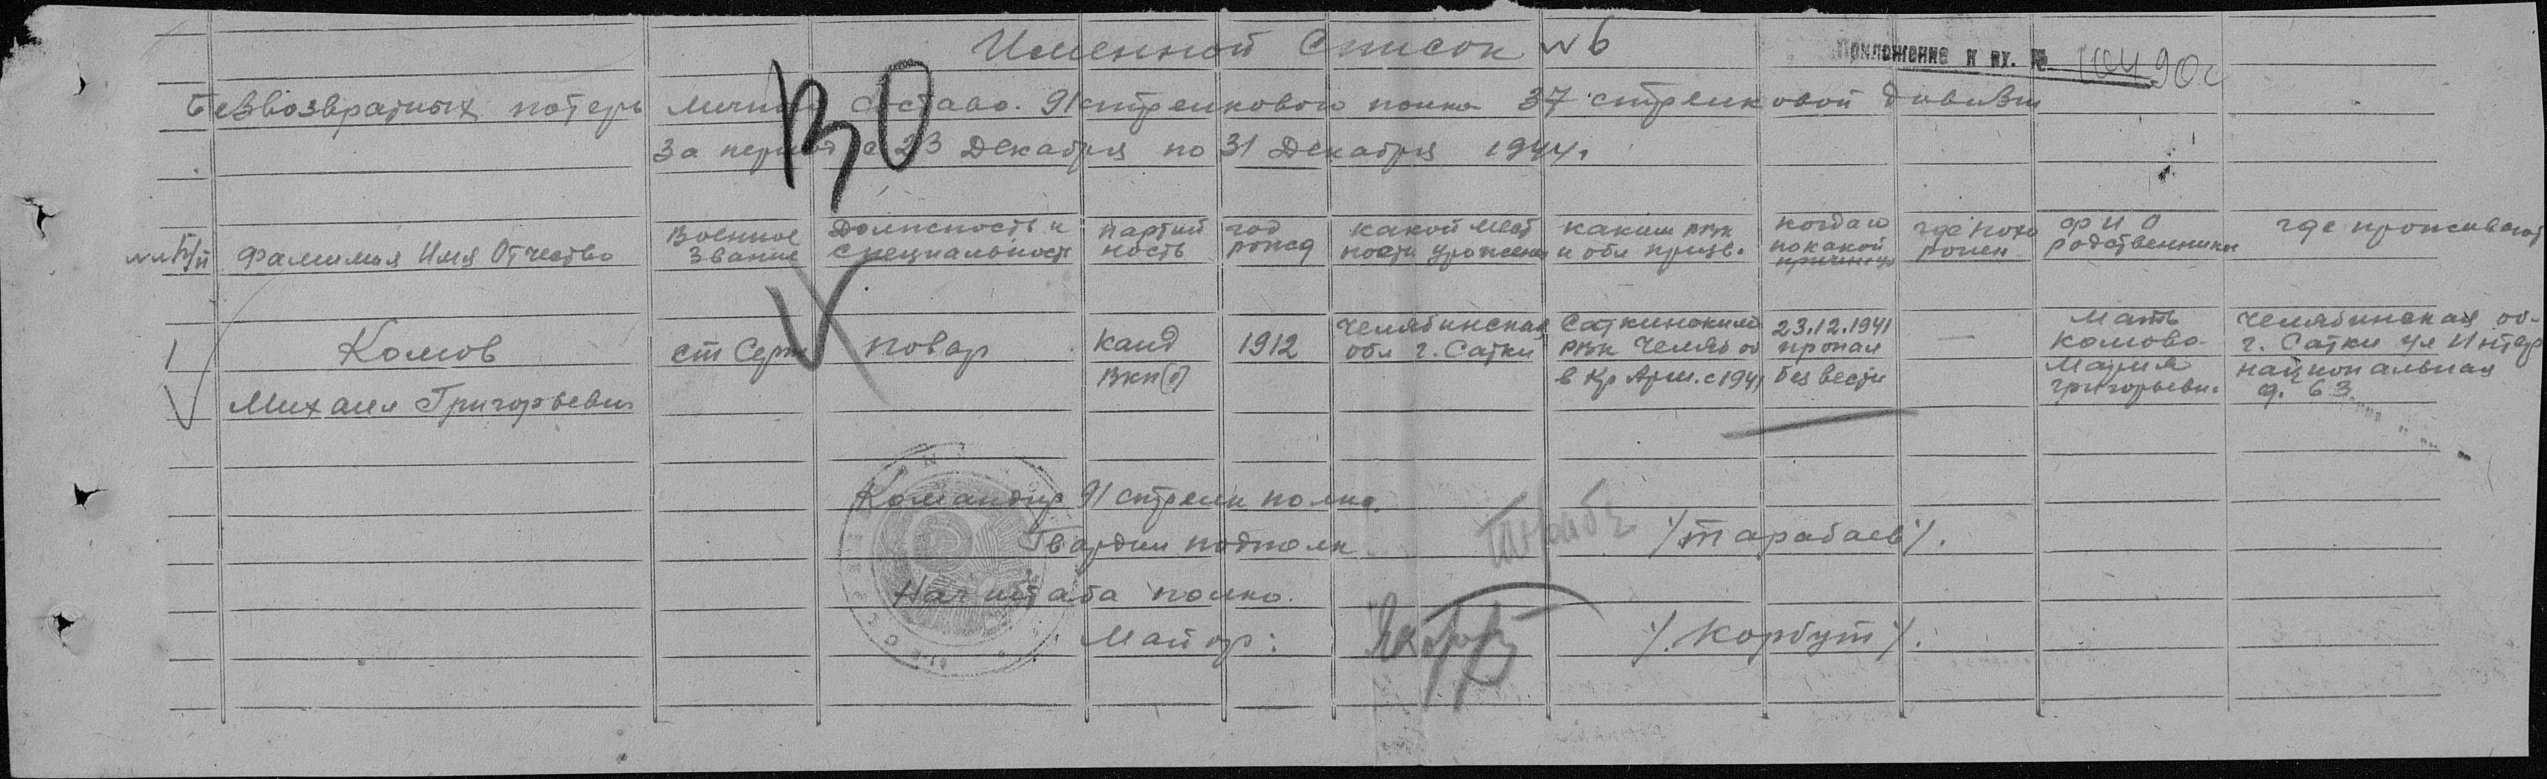 Именной список № 6
Приложение к вх. №
Безвозвратных потерь личного состава 91 стрелкового полка 37 стрелковой дивизии
За период с 23 Декабря по 31 Декабря 1944г.
ВО
№№ п/п
Фамилия Имя Отчество
Военное
Звание
Должность и
специальность
партий
ность
год
рожд
какой мест
ности уроженец
каким РВК
и обл призв.
когда и
по какой
причине
где похо
ронен
Ф И О
родственников
где проживают
1
Комов
Михаил Григорьевич
ст Серж
повар
канд
ВКП(б)
1912
Челябинская
обл г. Сатки
Саткинским
РВК Челяб об
в Кр Арм. с 1941
23.12.1941
пропал
без вести
—
Мать
Комова
Мария
Григорьевн.
Челябинская об-
г. Сатки ул Интер
национальная
д. 63
Командир 91 стрелк полка.
Гвардии подполк
/Тарабаев/.
Нач штаба полка.
Майор:
/.Корбут/.